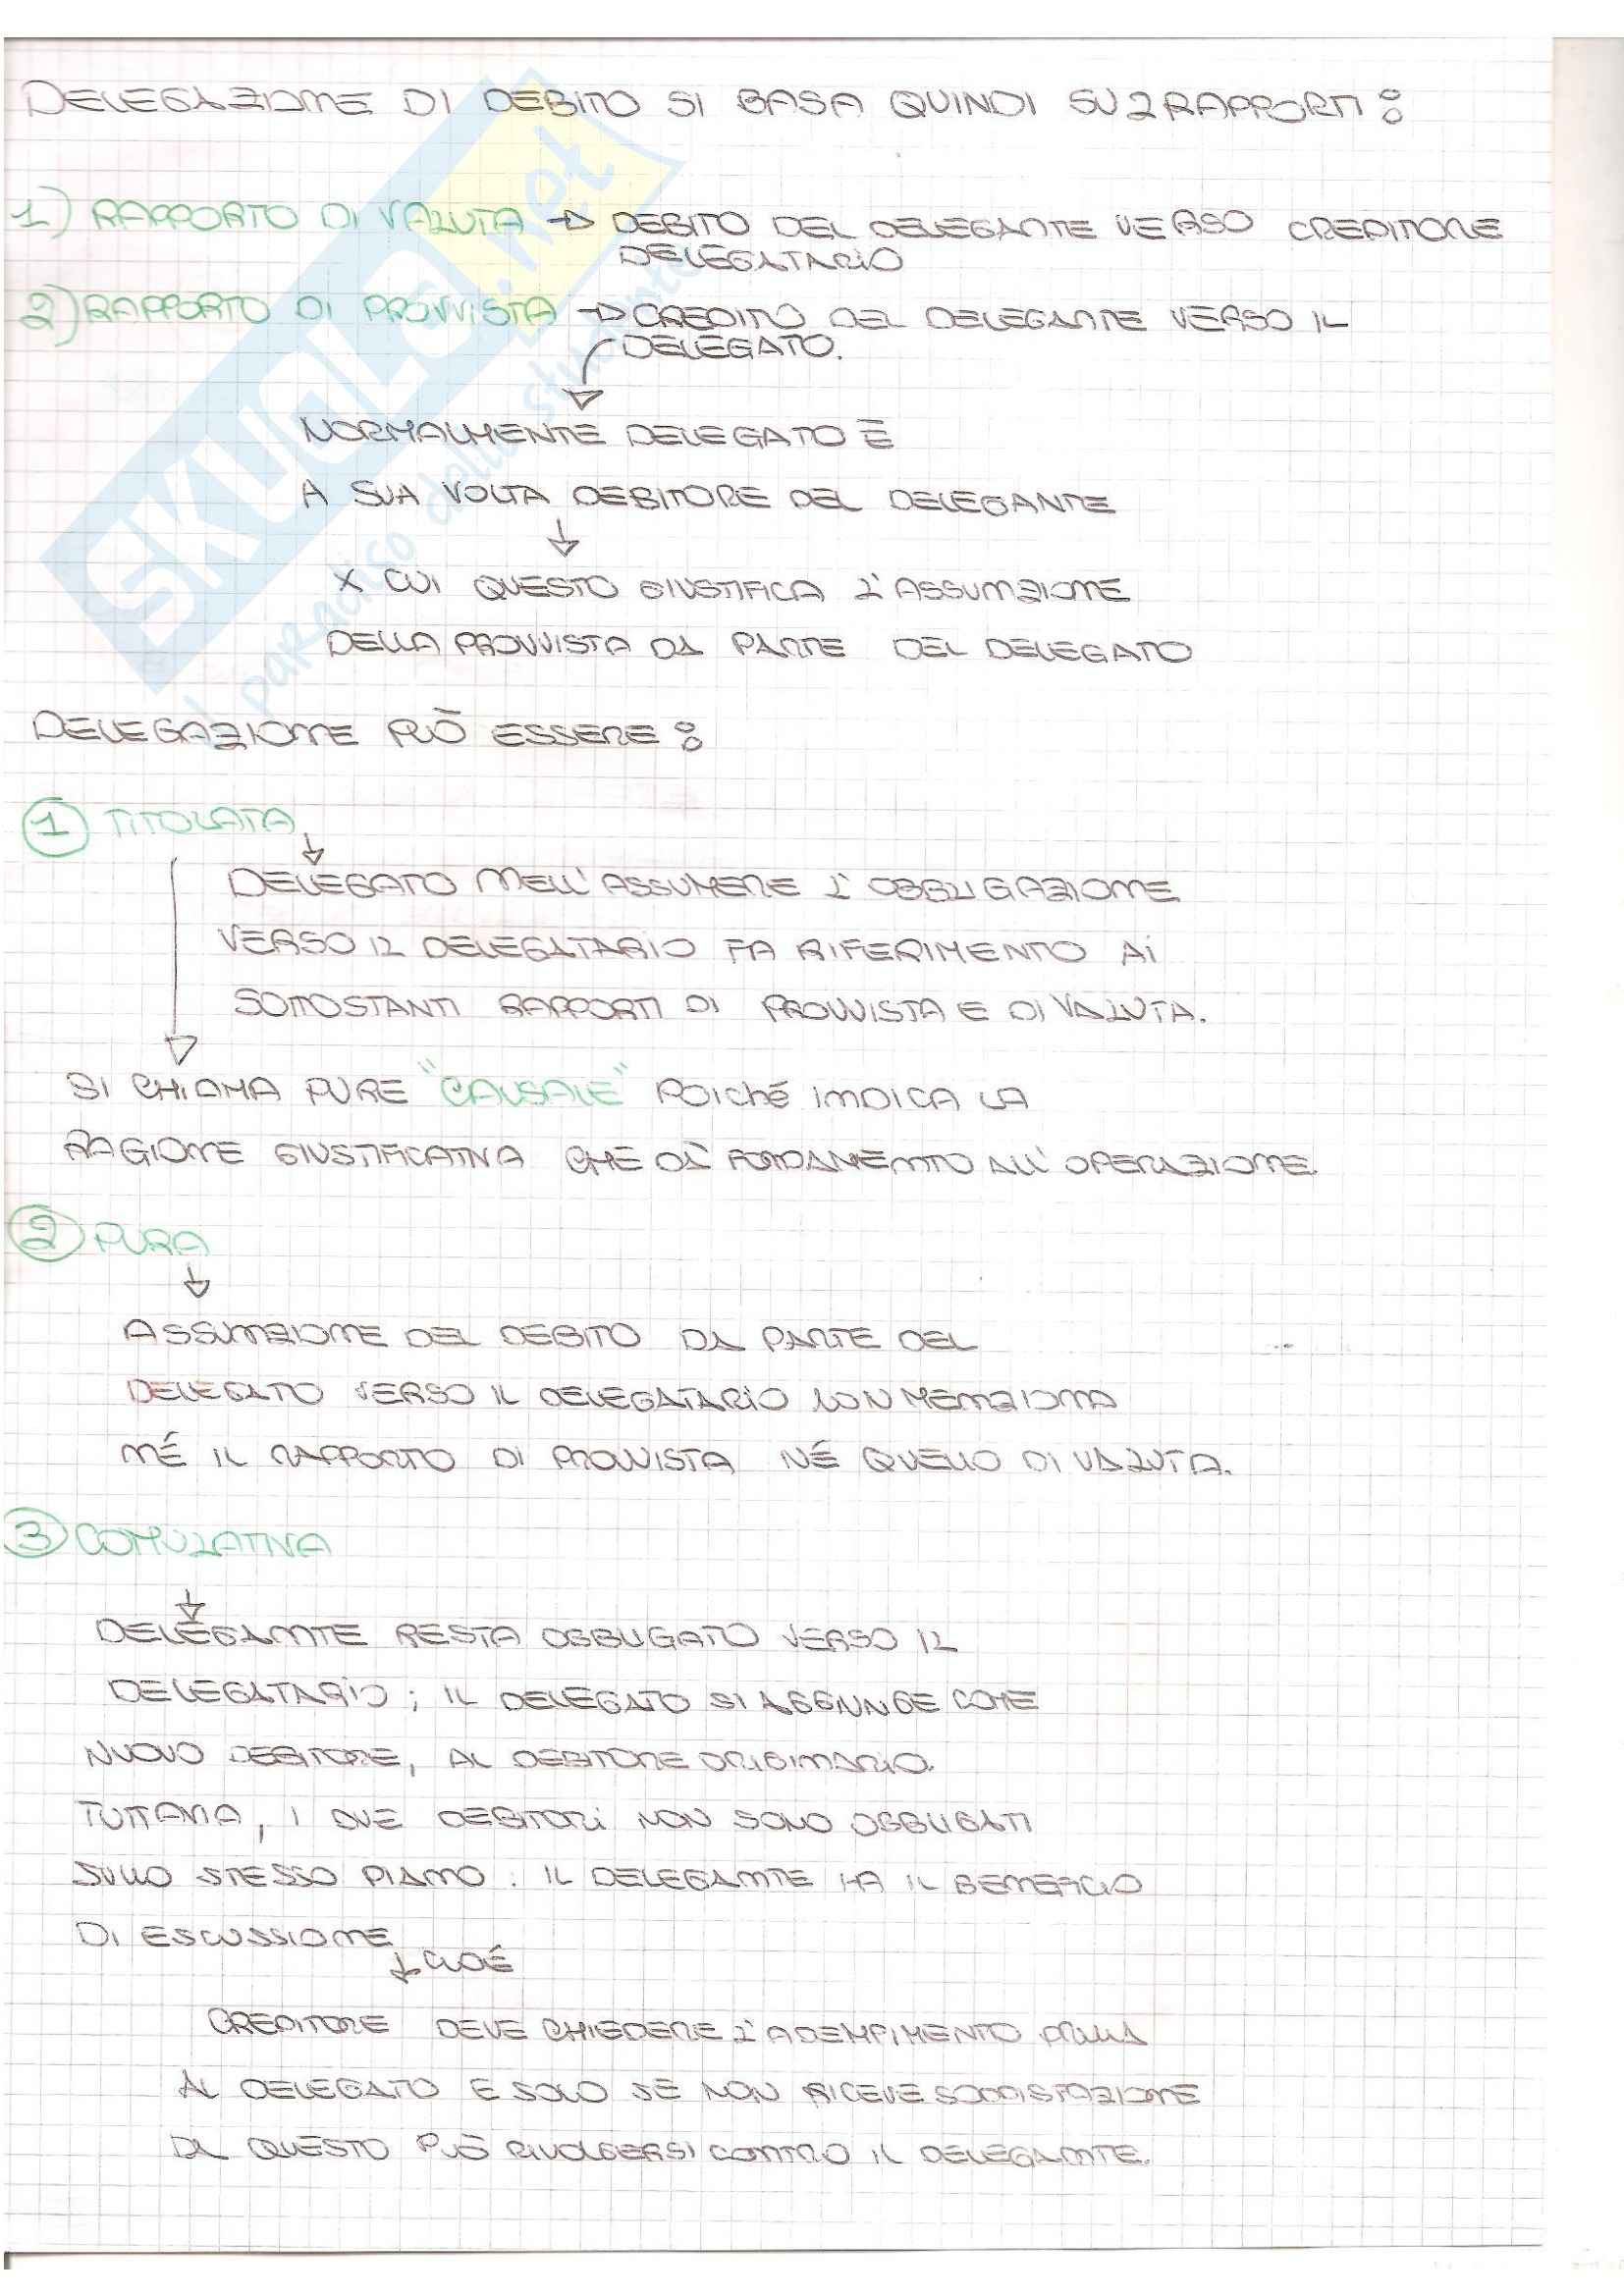 DELEGAZIONE DI DEBITO SI BASA QUINDI SU 2 RAPPORTI :
1) RAPPORTO DI VALUTA → DEBITO DEL DELEGANTE VERSO CREDITORE
DELEGATARIO
2) RAPPORTO DI PROVVISTA → CREDITO DEL DELEGANTE VERSO IL
DELEGATO.
NORMALMENTE DELEGATO È
A SUA VOLTA DEBITORE DEL DELEGANTE
↓
X CUI QUESTO GIUSTIFICA L'ASSUNZIONE
DELLA PROVVISTA DA PARTE DEL DELEGATO
DELEGAZIONE PUÒ ESSERE :
1 TITOLATA
↓
DELEGATO NELL'ASSUMERE L'OBBLIGAZIONE
VERSO IL DELEGATARIO FA RIFERIMENTO AI
SOTTOSTANTI RAPPORTI DI PROVVISTA E DI VALUTA.
SI CHIAMA PURE "CAUSALE" POICHÉ INDICA LA
RAGIONE GIUSTIFICATIVA CHE DÀ FONDAMENTO ALL'OPERAZIONE.
2 PURA
↓
ASSUNZIONE DEL DEBITO DA PARTE DEL
DELEGATO VERSO IL DELEGATARIO NON MENZIONA
NÉ IL RAPPORTO DI PROVVISTA NÉ QUELLO DI VALUTA.
3 COMULATIVA
↓
DELEGANTE RESTA OBBLIGATO VERSO IL
DELEGATARIO ; IL DELEGATO SI AGGIUNGE COME
NUOVO DEBITORE, AL DEBITORE ORIGINARIO.
TUTTAVIA, I DUE DEBITORI NON SONO OBBLIGATI
SULLO STESSO PIANO : IL DELEGANTE HA IL BENEFICIO
DI ESCUSSIONE
↓ CIOÉ
CREDITORE DEVE CHIEDERE L'ADEMPIMENTO PRIMA
AL DELEGATO E SOLO SE NON RICEVE SODDISFAZIONE
DA QUESTO PUÒ RIVOLGERSI CONTRO IL DELEGANTE.
SKUOLA.net
il paradiso dello studente